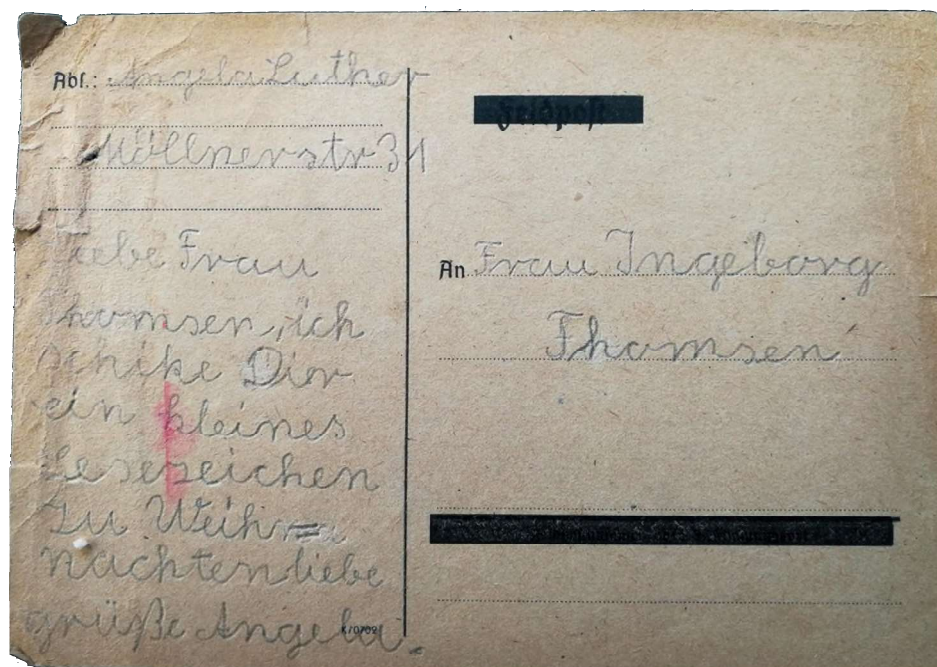 Abs.: Angela Luther
Möllnerstr 31
Liebe Frau
Thomsen, ich
schike Dir
ein kleines
Lesezeichen
zu Weih=
nachten liebe
grüße Angela.
K/0702
Feldpost
An Frau Ingeborg
Thomsen